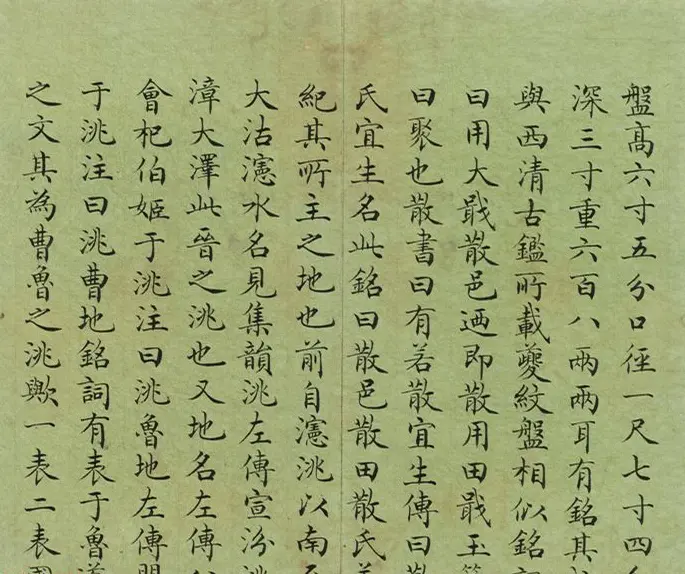 盤髙六寸五分口徑一尺七寸四
深三寸重六百八兩兩耳有銘其
與西清古鑑所載夔紋盤相似銘
曰用大散邑迺即散用田玉
曰聚也散書曰有若散宜生傳曰散
氏宜生名此銘曰散邑散田散氏
紀其所主之地也前自瀗洮以南
大沽瀗水名見集韻洮左傳宣汾洮
漳大澤此晉之洮也又地名左傳
會杞伯姬于洮注曰洮魯地左傳
于洮注曰洮曹地銘詞有表于魯道
之文其為曹魯之洮歟一表二表